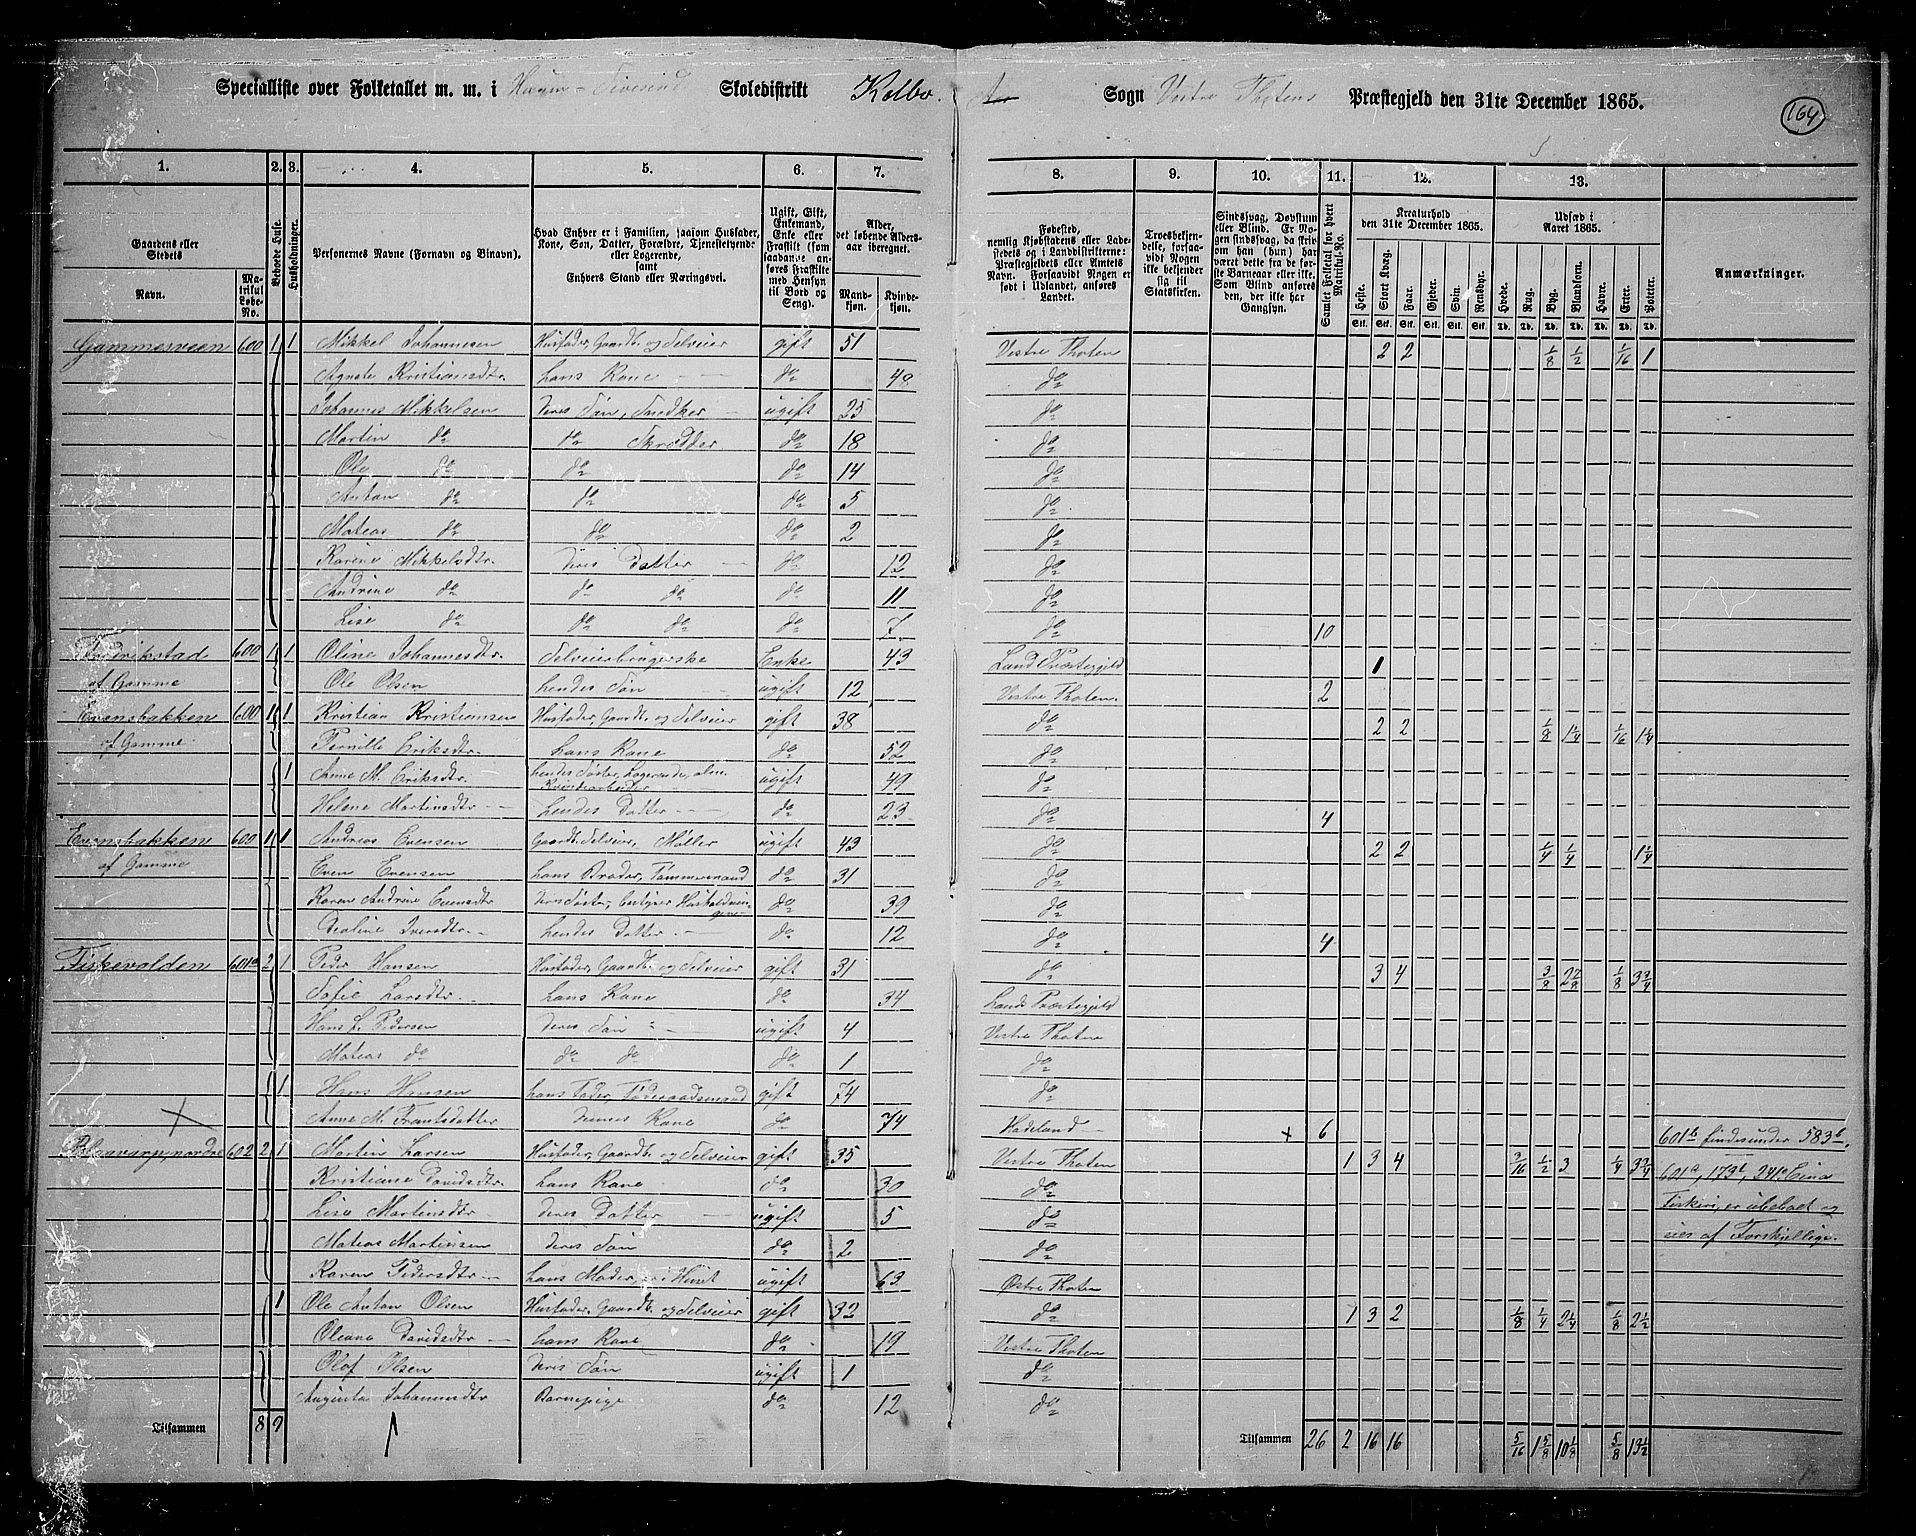 Specialliste over Folketallet m. m. i Skoledistrikt Kolbo. Sogn Vestre Thotens Præstegjeld den 31te December 1865.
164
1. 2. 3. 4. 5. 6. 7. 8. 9. 10. 11. 12. 13.
Gaardens eller Stedets
Navn.
Matrikul Løbe-No.
Beboede Huse.
Husholdninger.
Personernes Navne (Fornavn og Binavn).
Hvad Enhver er i Familien, saasom Husfader, Kone, Søn, Datter, Forældre, Tjenestetyende eller Logerende, samt Enhvers Stand eller Næringsvei.
Ugift, Gift, Enkemand, Enke eller Fraskilt (som saadanne anføres Fraskilte med Hensyn til Bord og Seng).
Alder, det løbende Alders-aar iberegnet.
Mandkjøn.
Kvindekjøn.
Fødested, nemlig Kjøbstadens eller Ladestedets eller i Landdistrikterne: Præstegjeldets eller Amtets Navn. Forsaavidt Nogen er født i Udlandet, anføres Landet.
Troesbekjendelse, forsaavidt Nogen ikke bekjender sig til Statskirken.
Sindssvag, Døvstum eller Blind. Er Nogen sindssvag, da skrives Barneaar eller ikke. Som Blind anføres den, der ikke har Gangsyn.
Samlet Folketal for hvert Matrikul-No.
Kreaturhold den 31te December 1865.
Heste. Stort Kvæg. Faar. Gjeder. Svin. Rensdyr.
Udsæd i Aaret 1865.
Hvede. Rug. Byg. Blandkorn. Havre. Erter. Poteter.
Anmærkninger.
Gammesveen 600 1 1 Mikkel Johannesen Husfader, Gaardb. og Selveier gift 51 Vestre Thoten 2 2 1/8 1/2 1/16 1
Agnete Kristiansdtr. hans Kone do 48 do
Johannes Mikkelsen deres Søn, Snedker ugift 25 do
Martin do do Skrædder do 18 do
Ole do do do 14 do
Anton do do do 5 do
Mateas do do do 2 do
Karine Mikkelsdtr. deres Datter do 12 do
Andrine do do do do 11 do
Lise do do do do 7 do 10
Fredrikstad 600 1 1 Oline Johannesdtr. Selveierbrugerske Enke 43 Land Præstegjeld 1
af Gamme Ole Olsen hendes Søn ugift 12 Vestre Thoten. 2
Evensbakken 600 1 1 Kristian Kristiansen Husfader, Gaardb. og Selveier gift 38 do 2 2 1/8 1 1/4 1/16 1 1/4
af Gamme Pernille Eriksdtr. hans Kone do 52 do
1 Anne M. Eriksdtr. hendes Søster, Logerende, alm. Kvindearbeider ugift 49 do
Helene Martinsdtr hendes Datter do 23 do 4
Evensbakken 600 1 1 Andreas Evensen Gaardb. Selveier, Møller ugift 43 do 2 2 1/4 1/4 1 1/4
af Gamme Even Evensen hans Broder, Tømmermand do 31 do
Karen Andrine Evensdtr deres Søster, bestyrer Husholdningen do 39 do
Iversdtr. hendes Datter do 12 do 4
Fiskevolden 601a 2 1 Peder Hansen Husfader, Gaardb. og Selveier gift 31 do 3 4 3/8 2 7/8 1/8 3 3/4
Sofie Larsdtr. hans Kone do 34 Lands Præstegjeld
Hans L. Pedersen deres Søn ugift 4 Vestre Thoten
Mateas do do do do 1 do
1 Hans Hansen hans Fader, Føderaadsmand gift 74 do
Anne M. Frantsdatter dennes Kone do 74 Hadeland + 6 601b findes under 583b.
Blaavarp, nordre 602 2 1 Martin Larsen Husfader, Gaardb. og Selveier gift 35 Vestre Thoten 1 3 4 3/16 1/2 3 1/4 3 3/4
Kristiane Davidsdtr. hans Kone do 30 do 601a, 173b, 241a Eina
Lise Martinsdtr. deres Datter ugift 5 do Fiskeri, er ubeboet og
Mateas Martinsen deres Søn do 2 do eies af Forskjellige.
Karen Pedersdtr. hans Moder, i Huset ugift 63 Østre Thoten
1 Ole Anton Olsen Husfader, Gaardb. og Selveier gift 32 do 1 3 2 1/8 1/4 2 1/4 1/8 2 1/2
Oleana Davidsdtr. hans Kone do 19 Vestre Thoten
Olof Olsen deres Søn ugift 1 do
Augusta Johannesdtr Barnepige do 12 do
Tilsammen 8 9 Tilsammen 26 2 16 16 5/16 1 5/8 10 1/8 5/8 13 1/2